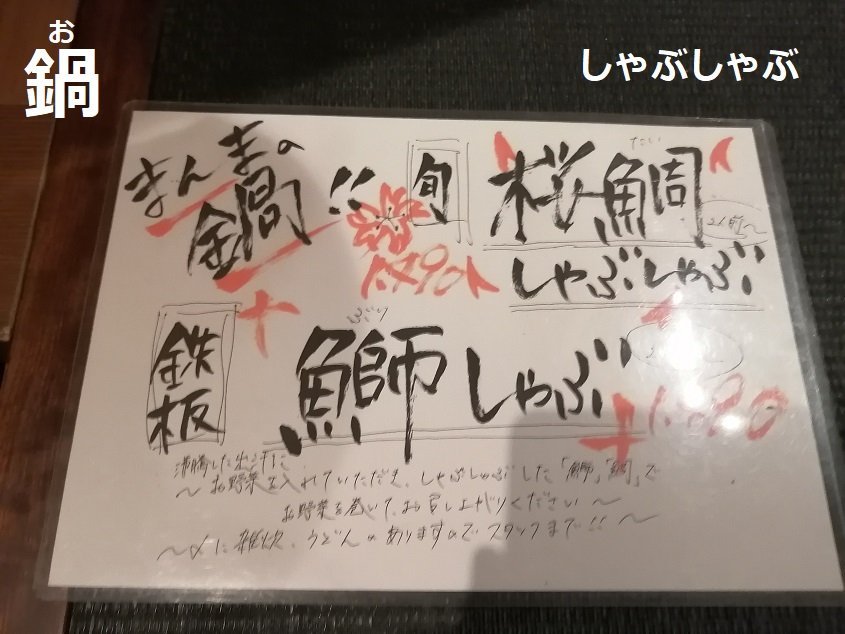 お
鍋
しゃぶしゃぶ
まんまの
鍋!!
旬
たい
桜鯛
2人前~
しゃぶしゃぶ
1.490
鉄板
ぶり
鰤しゃぶ
沸騰した出汁に
~お野菜を入れていただき、しゃぶしゃぶした「鰤」「鯛」で
お野菜を巻いてお召し上がりください~
~〆に雑炊、うどんのありますのでスタッフまで!!~